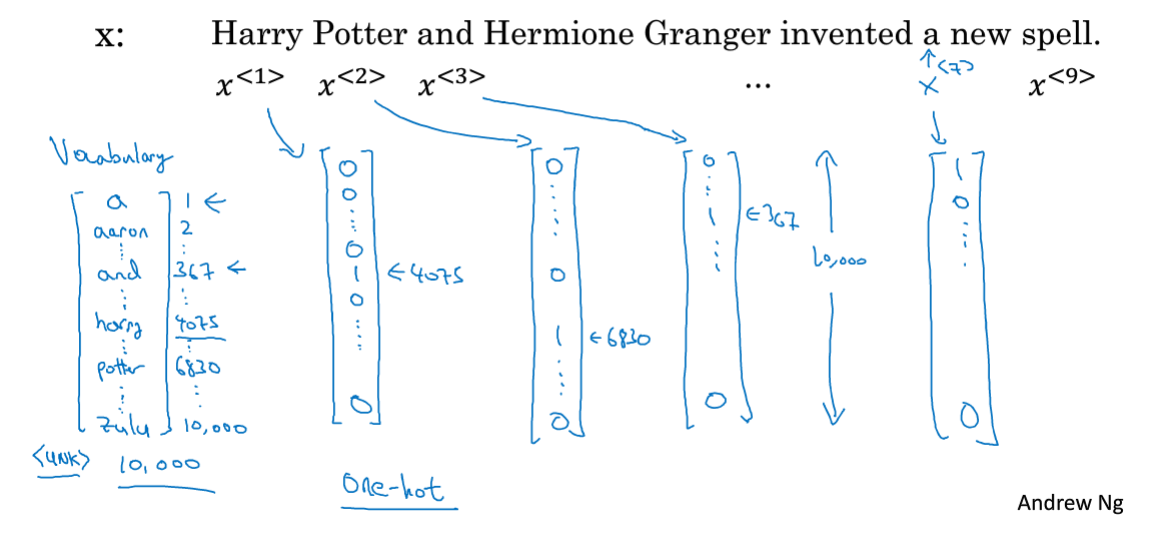 x: Harry Potter and Hermione Granger invented a new spell.
x<1> x<2> x<3> ... x<7> x<9>
Vocabulary
a 1 ←
aaron 2
and 367 ←
harry 4075
potter 6830
zulu 10,000
<UNK> 10,000
0
0
0
1 ←4075
0
0
0
0
1 ←6830
0
0
1 ←367
0
10,000
1
0
0
One-hot
Andrew Ng